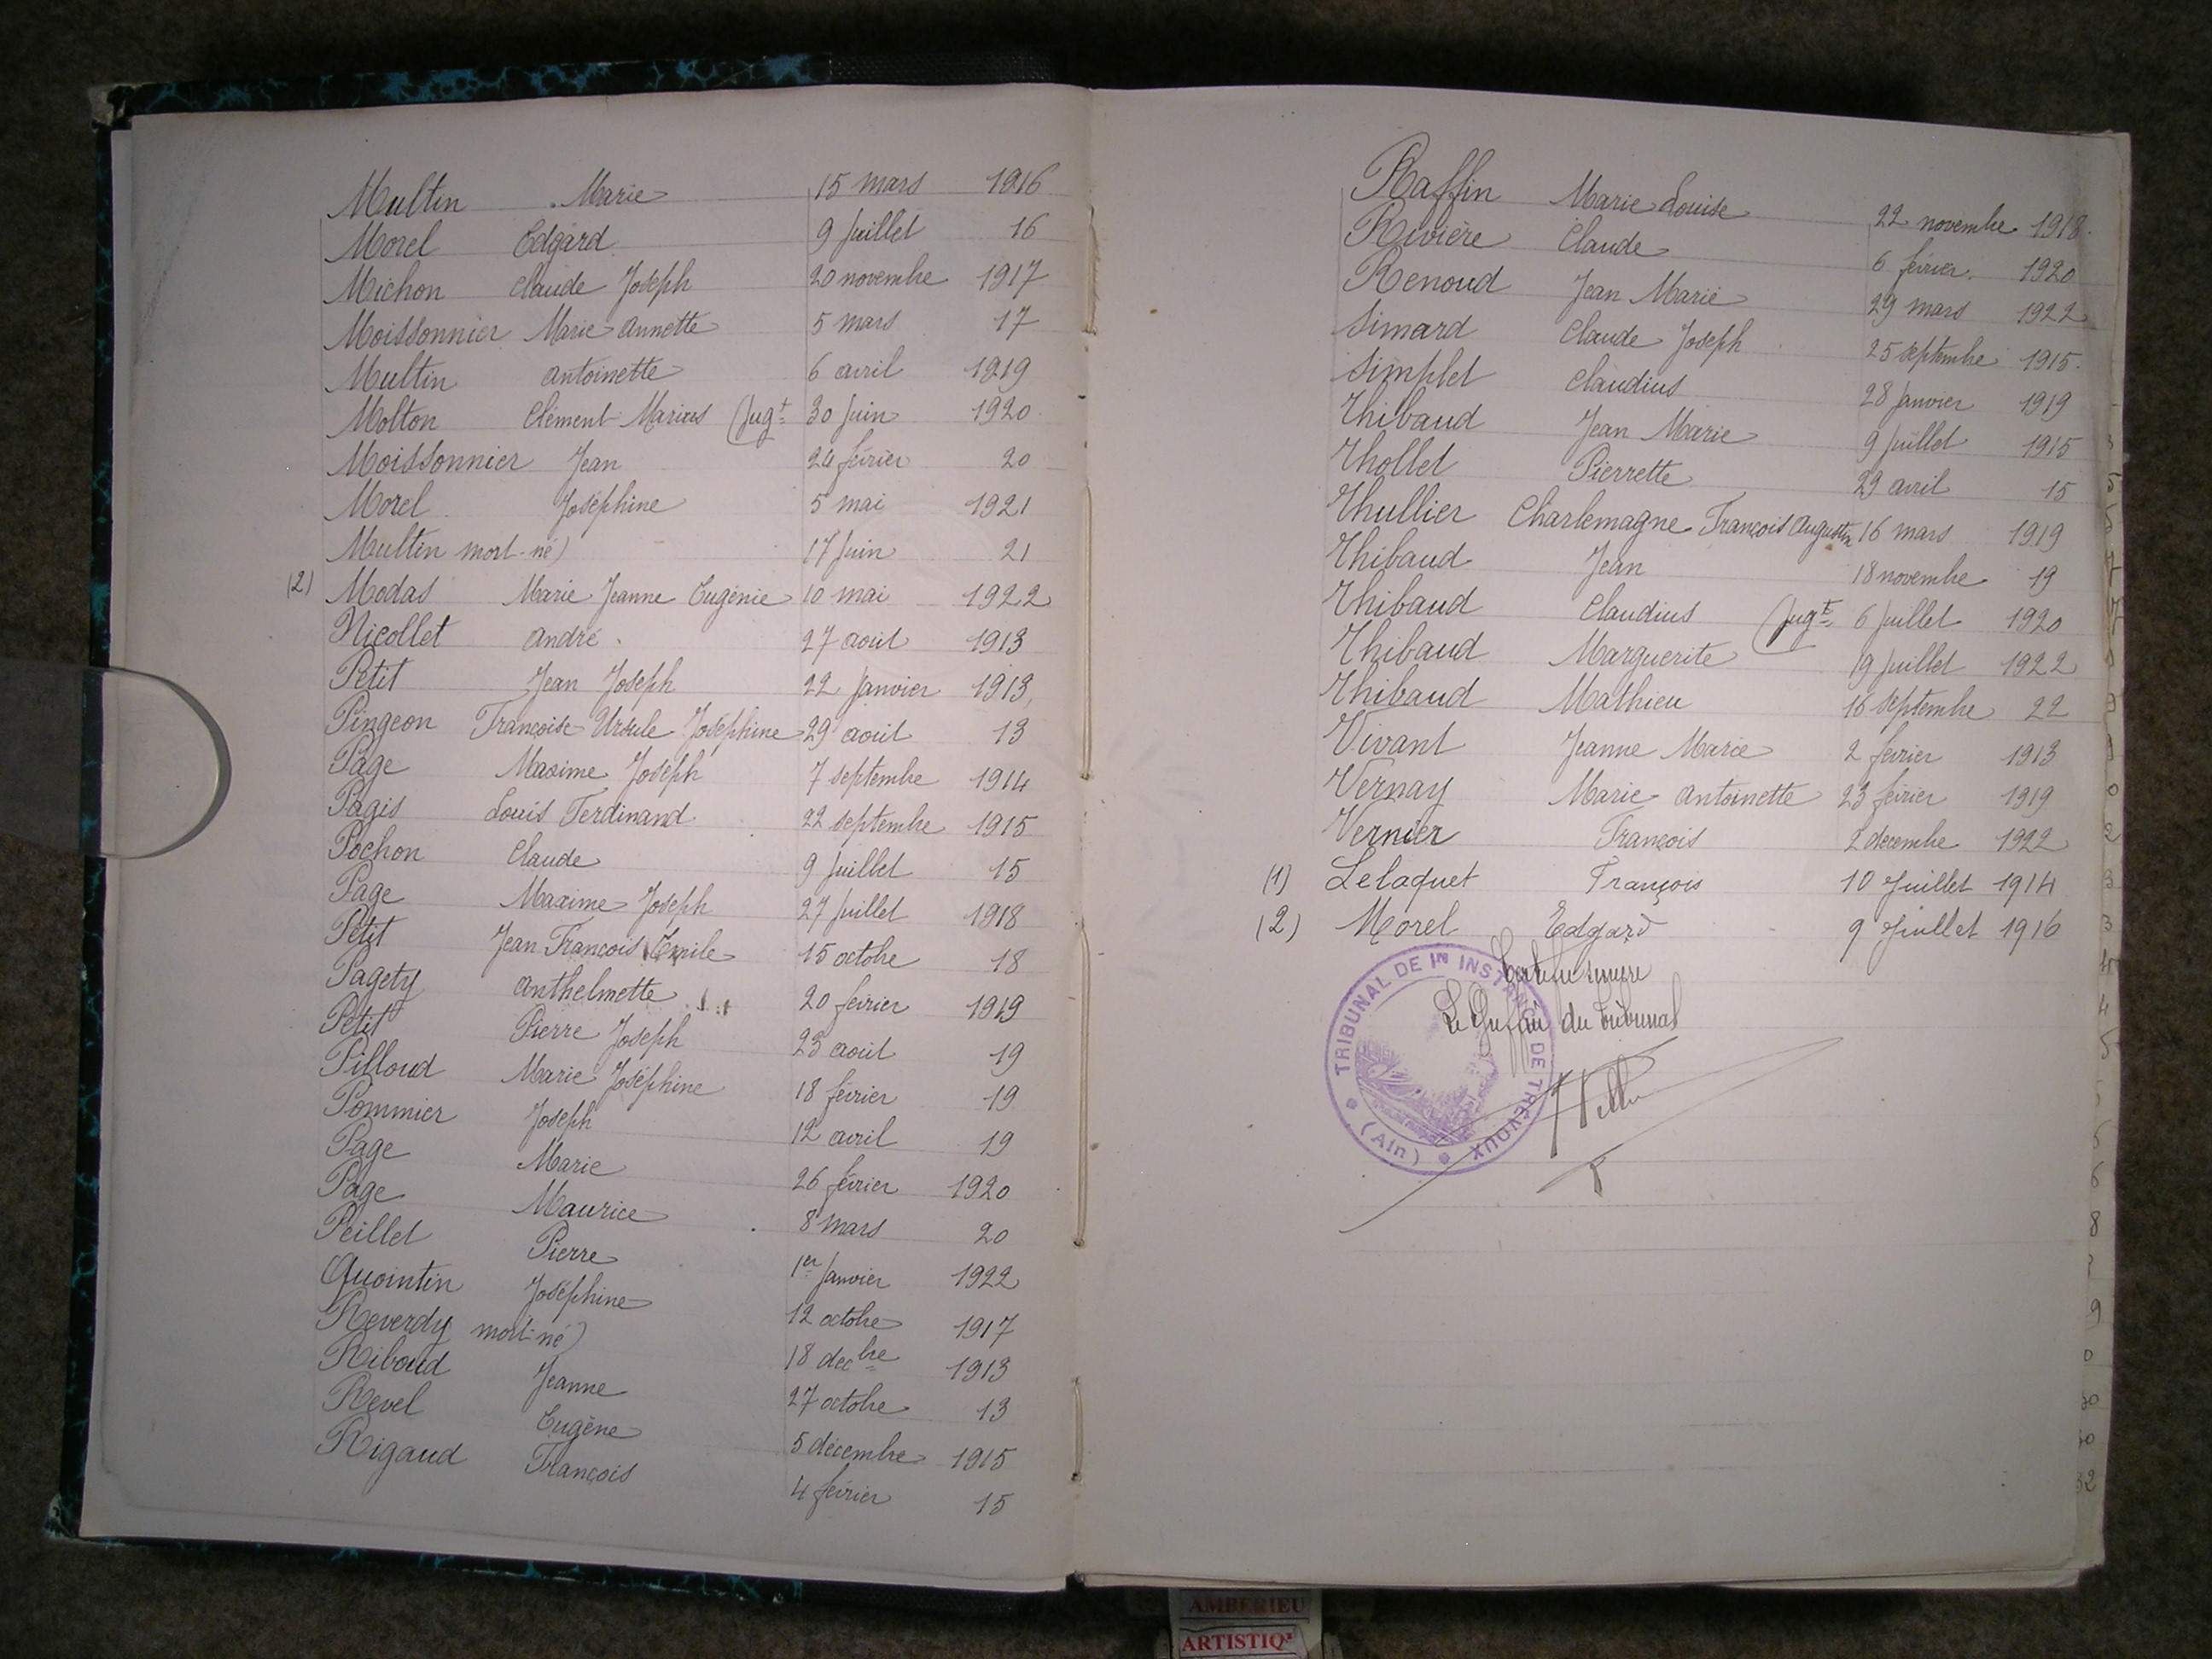 Multin Marie 15 mars 1916
Morel Edgard 9 juillet 16
Michon Claude Joseph 20 novembre 1917
Moissonnier Marie Annette 5 mars 17
Multin Antoinette 6 avril 1919
Molton Clément Marius (jugt 30 juin 1920
Moissonnier Jean 24 février 20
Morel Joséphine 5 mai 1921
Multin mort-né) 17 juin 21
(2) Modas Marie Jeanne Eugénie 10 mai 1922
Nicollet André 27 août 1913
Petit Jean Joseph 22 janvier 1913
Pingeon Françoise Ursule Joséphine 29 août 13
Page Maxime Joseph 7 septembre 1914
Pagis Louis Ferdinand 22 septembre 1915
Pochon Claude 9 juillet 15
Page Maxime Joseph 27 juillet 1918
Petit Jean François Emile 15 octobre 18
Pagety Anthelmette 20 février 1919
Petit Pierre Joseph 23 août 19
Pilloud Marie Joséphine 18 février 19
Pommier Joseph 12 avril 19
Page Marie 26 février 1920
Page Maurice 8 mars 20
Peillet Pierre 1er janvier 1922
Quointin Joséphine 12 octobre 1917
Reverdy mort-né) 18 decbre 1913
Riboud Jeanne 27 octobre 13
Revel Eugène 5 décembre 1915
Rigaud François 4 février 15
Raffin Marie Louise 22 novembre 1918
Rivière Claude 6 février 1920
Renoud Jean Marie 29 mars 1922
Simard Claude Joseph 25 septembre 1915
Simplet Claudius 28 janvier 1919
Thibaud Jean Marie 9 juillet 1915
Thollet Pierrette 29 avril 15
Thullier Charlemagne François Augustin 16 mars 1919
Thibaud Jean 18 novembre 19
Thibaud Claudius (jugt 6 juillet 1920
Thibaud Marguerite 19 juillet 1922
Thibaud Mathieu 16 septembre 22
Vivant Jeanne Marie 2 février 1913
Vernay Marie Antoinette 23 février 1919
Vernier François 2 décembre 1922
(1) Lelaquet François 10 Juillet 1914
(2) Morel Edgard 9 Juillet 1916
Le Greffier du Tribunal
TRIBUNAL DE 1re INSTANCE DE TRÉVOUX
(Ain)
AMBERIEU
ARTISTIQ